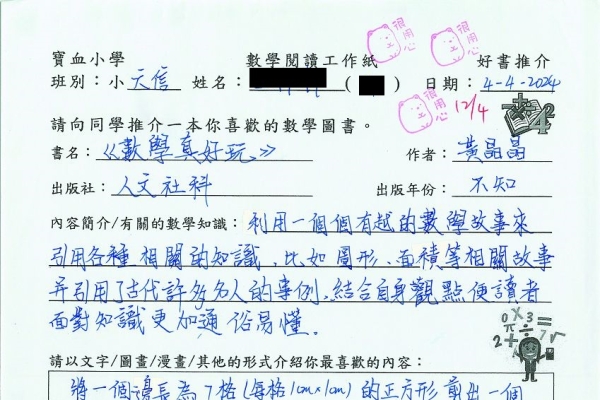 寶血小學 數學閱讀工作紙 好書推介
班別：小 六信 姓名： ( ) 日期：4-4-2024
很用心
很用心
很用心
12/4
請向同學推介一本你喜歡的數學圖書。
書名：《數學真好玩》 作者：黃晶晶
出版社：人文社科 出版年份：不知
內容簡介/有關的數學知識：利用一個個有趣的數學故事來
引用各種相關的知識、比如圖形、面積等相關故事
并引用了古代許多名人的事例，結合自身觀點使讀者
面對知識更加通俗易懂.
請以文字/圖畫/漫畫/其他的形式介紹你最喜歡的內容：
將一個邊長為7格(每格1cm×1cm)的正方形剪出一個